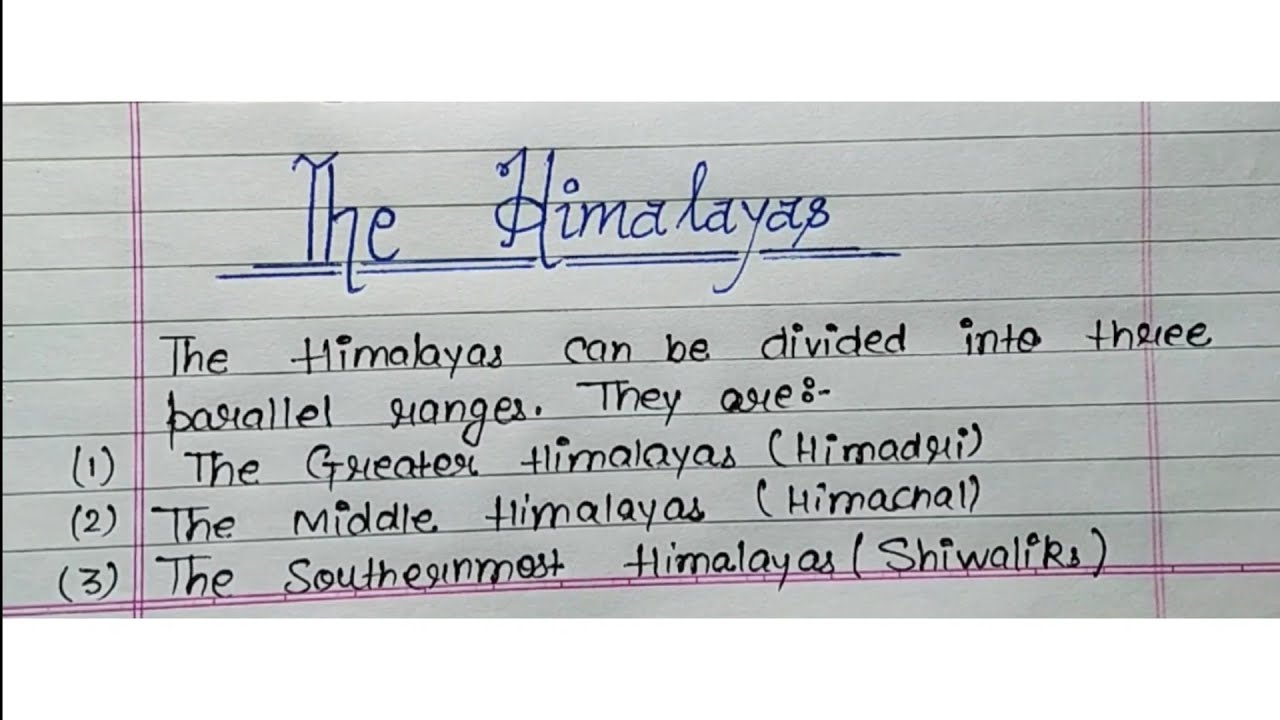 The Himalayas
The Himalayas can be divided into three
parallel ranges. They are:-
(1) The Greater Himalayas (Himadri)
(2) The Middle Himalayas (Himachal)
(3) The Southernmost Himalayas (Shiwaliks)